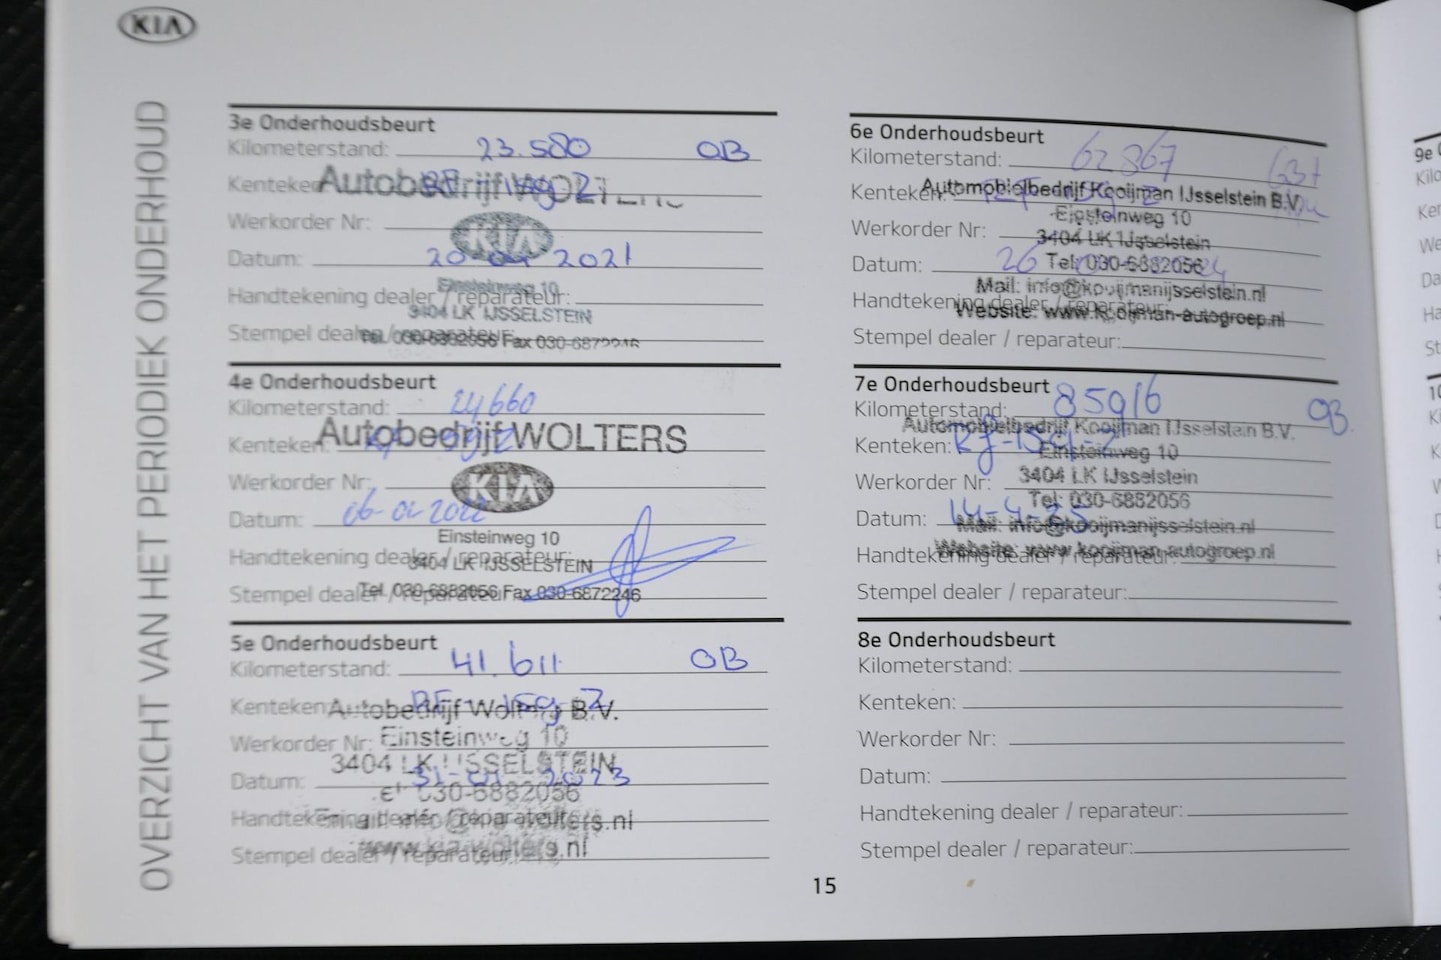 KIA
OVERZICHT VAN HET PERIODIEK ONDERHOUD
3e Onderhoudsbeurt
Kilometerstand: 23.580 OB
Kenteken: Autobedrijf WOLTERS
Werkorder Nr:
KIA
Datum: 20 04 2021
Einsteinweg 10
Handtekening dealer / reparateur:
3404 LK IJSSELSTEIN
Stempel dealer / reparateur:
Tel. 030-6882056 Fax 030-6872246
4e Onderhoudsbeurt
Kilometerstand: 24660
Kenteken: Autobedrijf WOLTERS
Werkorder Nr:
KIA
Datum: 06-01-2022
Einsteinweg 10
Handtekening dealer / reparateur:
3404 LK IJSSELSTEIN
Stempel dealer / reparateur:
Tel. 030-6882056 Fax 030-6872246
5e Onderhoudsbeurt
Kilometerstand: 41.611 OB
Kenteken: Autobedrijf Wolters B.V.
Werkorder Nr: Einsteinweg 10
3404 LK IJSSELSTEIN
Datum: 2023
030-6882056
Handtekening dealer / reparateur:
Stempel dealer / reparateur:
www.kia-wolters.nl
6e Onderhoudsbeurt
Kilometerstand: 62867
Kenteken: Automobielbedrijf Kooijman IJsselstein B.V.
Einsteinweg 10
Werkorder Nr:
3404 LK IJsselstein
Datum: 26 Tel: 030-6882056
Mail: info@kooijmanijsselstein.nl
Handtekening dealer / reparateur:
Website: www.kooijman-autogroep.nl
Stempel dealer / reparateur:
7e Onderhoudsbeurt
Kilometerstand: 85916 OB
Automobielbedrijf Kooijman IJsselstein B.V.
Kenteken:
Einsteinweg 10
Werkorder Nr: 3404 LK IJsselstein
Tel: 030-6882056
Datum: 14-4-25
Mail: info@kooijmanijsselstein.nl
Handtekening dealer / reparateur:
Website: www.kooijman-autogroep.nl
Stempel dealer / reparateur:
8e Onderhoudsbeurt
Kilometerstand:
Kenteken:
Werkorder Nr:
Datum:
Handtekening dealer / reparateur:
Stempel dealer / reparateur:
15
9e